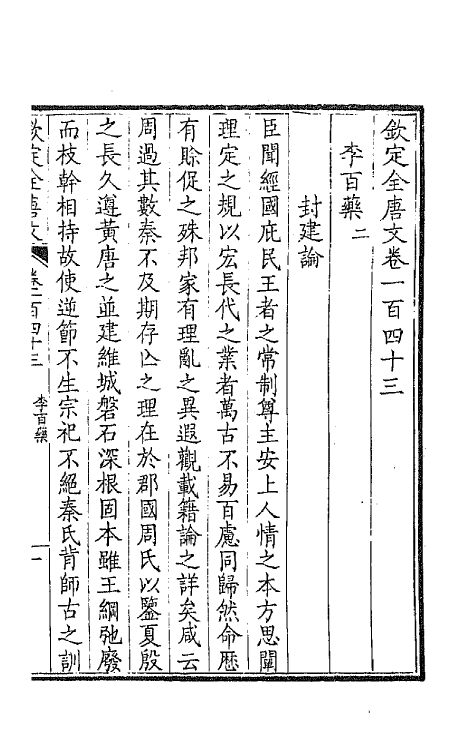 欽定全唐文卷一百四十三
李百藥二
封建論
臣聞經國庇民王者之常制尊主安上人情之本方思闡
理定之規以宏長代之業者萬古不易百慮同歸然命歷
有賒促之殊邦家有理亂之異遐觀載籍論之詳矣咸云
周過其數秦不及期存亾之理在於郡國周氏以鑒夏殷
之長久遵黃唐之並建維城磐石深根固本雖王綱弛廢
而枝幹相持故使逆節不生宗祀不絕秦氏背師古之訓
欽定全唐文 卷一百四十三 李百藥 一